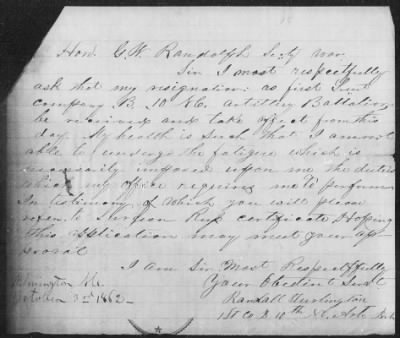 Hon. G. W. Randolph Secty war
Sir I most respectfully
ask that my resignation as first Lieut
company B. 10 N.C. Artillery Battalion
be received and take effect from this
day. My health is such that I am not
able to undergo the fatigue which is
necessarily imposed upon me the duties
which my office requires me to perform
In testimony of which you will please
refer to Surgeon certificate, Hoping
this application may meet your ap
proval
I am Sir Most Respectfully
Your Obedient Servt
Randall
1st Co B 10th N.C. Arty
Wilmington N.C.
October 2nd 1862